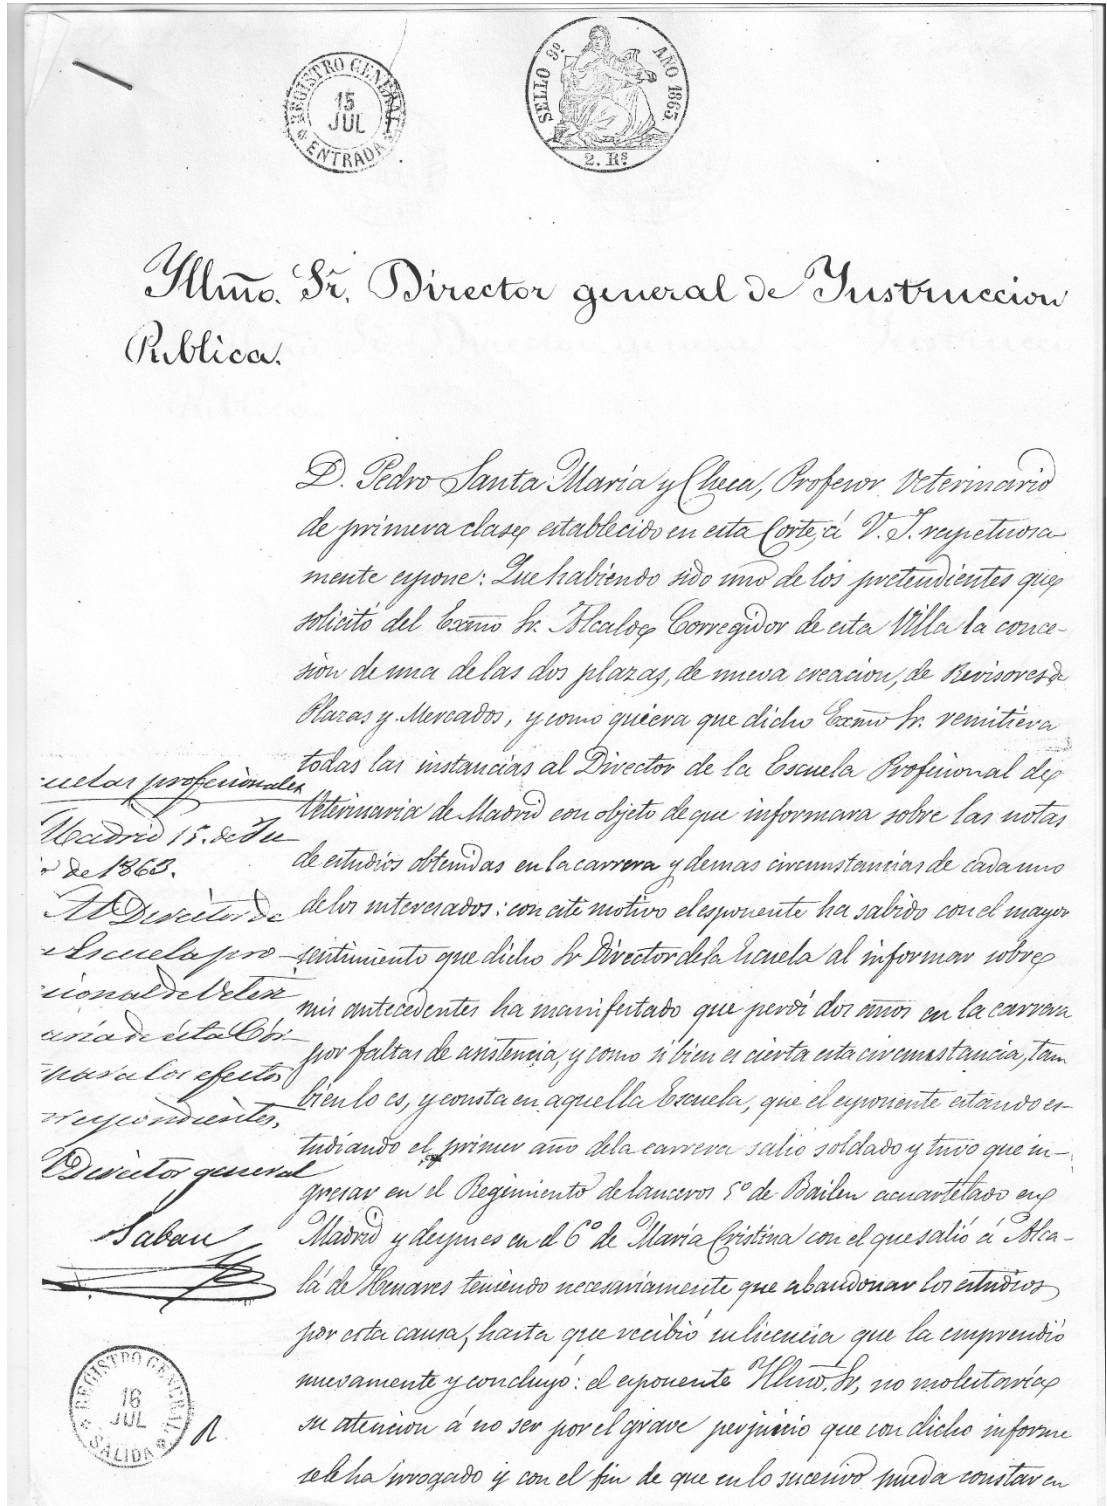 REGISTRO GENERAL
15
JUL
ENTRADA
SELLO 9º AÑO 1863
2. Rs
Yllmo. Sr. Director general de Ynstruccion
Publica.
D. Pedro Santa María y Checa, Profesor Veterinario
de primera clase, establecido en esta Corte, á V. I. respetuosa
mente espone: Que habiendo sido uno de los pretendientes que
solicitó del Exmo Sr. Alcalde Corregidor de esta Villa la conce-
sion de una de las dos plazas, de nueva creacion, de Revisores de
Plazas y Mercados, y como quiera que dicho Exmo Sr. remitiera
todas las instancias al Director de la Escuela Profesional de
Veterinaria de Madrid con objeto de que informara sobre las notas
de estudios obtenidas en la carrera y demas circunstancias de cada uno
de los interesados: con este motivo el esponente ha sabido con el mayor
sentimiento que dicho Sr Director de la Escuela al informar sobre
mis antecedentes ha manifestado que perdí dos años en la carrera
por faltas de asistencia, y como si bien es cierta esta circunstancia, tam
bien lo es, y consta en aquella Escuela, que el esponente estando es-
tudiando el primer año de la carrera salió soldado y tuvo que in-
gresar en el Regimiento de lanceros 5º de Bailen acuartelado en
Madrid y despues en el 6º de María Cristina con el que salió á Alca-
lá de Henares teniendo necesariamente que abandonar los estudios
por esta causa, hasta que recibió su licencia que la emprendió
nuevamente y concluyó: el esponente Yllmo. Sr, no molestaría
su atencion á no ser por el grave perjuicio que con dicho informe
se le ha irrogado y con el fin de que en lo sucesivo pueda constar en
uelas profesionales
Madrid 15. de Ju
de 1863.
Al Director de
Escuela pro-
sional de Veteri
aria de esta Cór-
para los efectos
rrespondientes.
Director general
Sabau
REGISTRO GENERAL
16
JUL
SALIDA